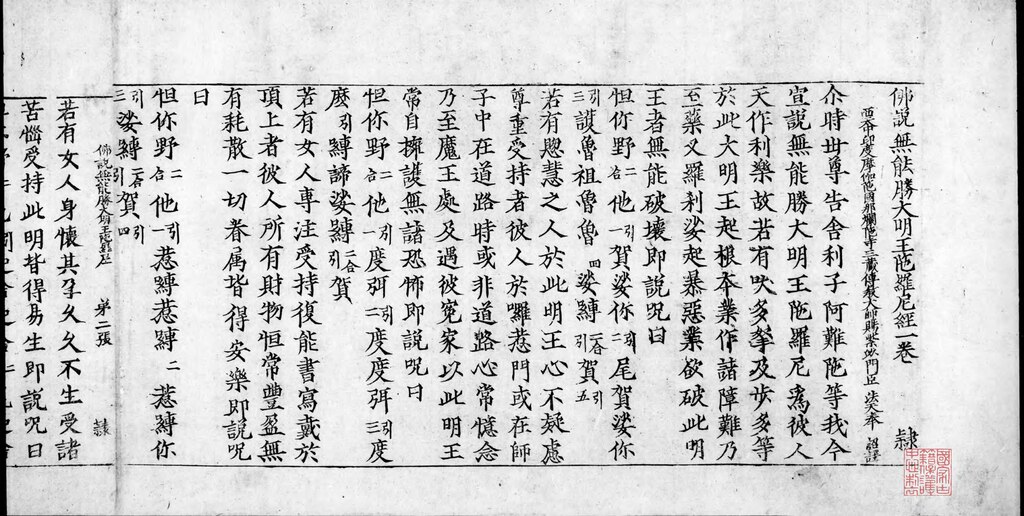 佛說無能勝大明王陁羅尼經一卷 隸
西天中印度摩伽陁國那爛陁寺三藏傳教大師賜紫沙門臣法天奉 詔譯
尒時世尊告舍利子阿難陁等我今
宣說無能勝大明王陁羅尼爲彼人
天作利樂故若有吠多拏及步多等
於此大明王起根本業作諸障難乃
至藥叉羅刹娑起暴惡業欲破此明
王者無能破壞即說呪曰
怛你野二合他一引賀娑你二尾賀娑你
三引護魯祖魯魯四娑縛二合引賀五引
若有慇慧之人於此明王心不疑慮
尊重受持者彼人於囉惹門或在師
子中在道路時或非道路心常憶念
乃至魔王處及遇彼寃家以此明王
常自擁護無諸恐怖即說呪曰
怛你野二合他一引度弭二引度度弭三引度
麽引縛諦娑縛二合引賀
若有女人專注受持復能書寫戴於
頂上者彼人所有財物恒常豐盈無
有耗散一切眷属皆得安樂即說呪
曰
怛你野二合他一引惹縛惹縛二惹縛你
三引娑縛二合引賀四引
佛說無能勝大明王陁羅尼 第二張 隸
若有女人身懷其孕久久不生受諸
苦惱受持此明皆得易生即說呪曰